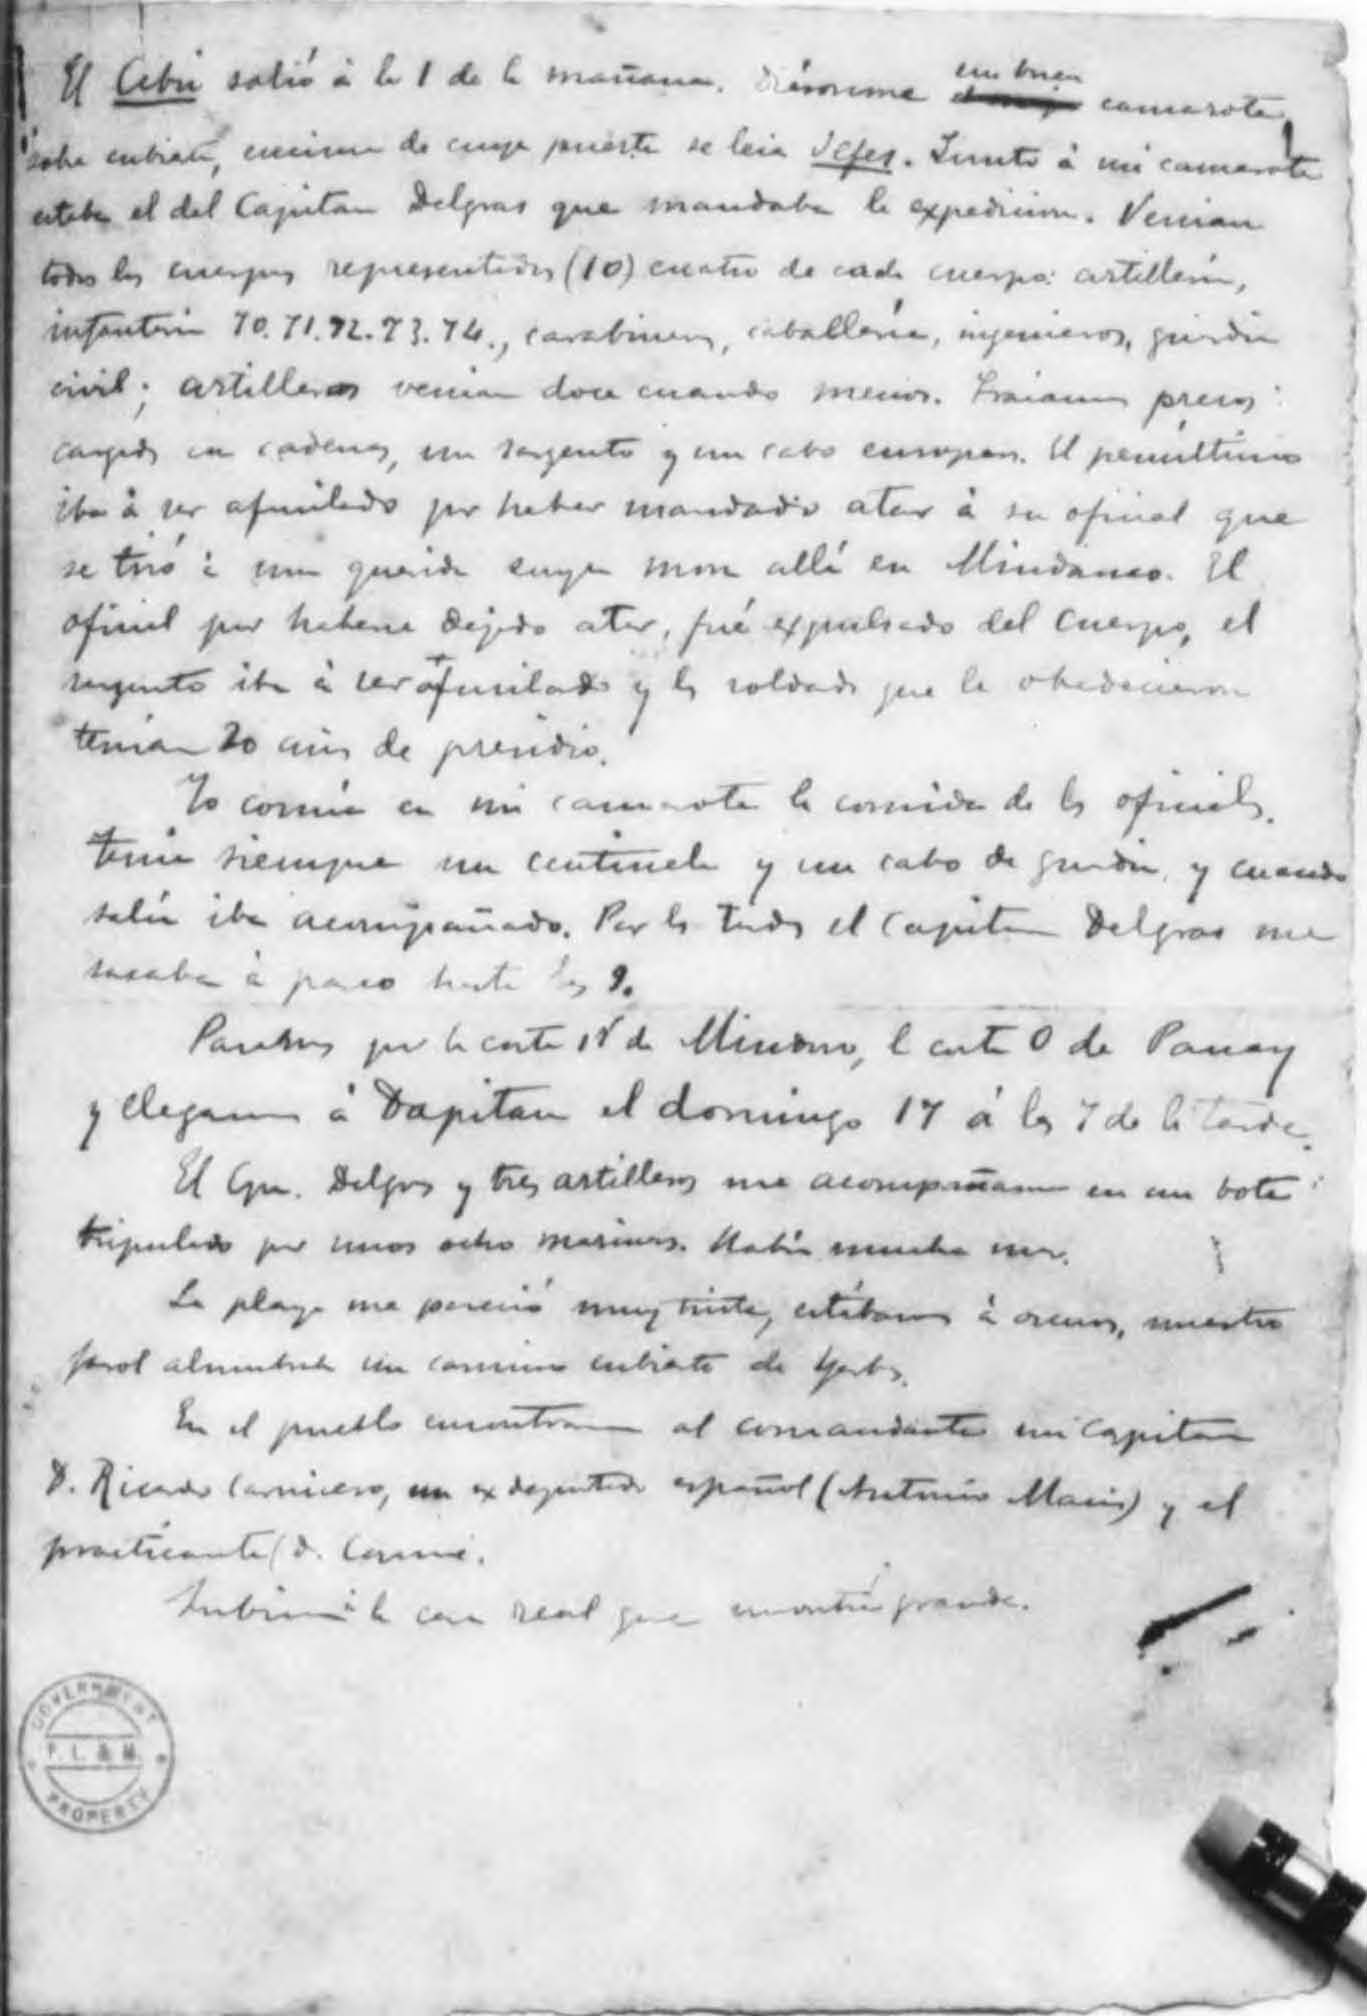 El Cebú salió á la 1 de la mañana. Diéronme un buen camarote
sobre cubierta, encima de cuya puerta se leía Jefes. Junto á mi camarote
estaba el del Capitan Delgras que mandaba la expedicion. Venian
todos los cuerpos representados (10) cuatro de cada cuerpo: artillería,
infantería 70. 71. 72. 73. 74., carabineros, caballería, ingenieros, guardia
civil; artilleros venian doce cuando menos. Traiamos presos
cargados en cadenas, un sargento y un cabo europeos. El penúltimo
iba á ser afusilado por haber mandado atar á su oficial que
se tiró á una querida suya mora allá en Mindanao. El
oficial por haberse dejado atar, fué expulsado del cuerpo, el
sargento iba á ser afusilado y los soldados que le obedecieron
tenían 20 años de presidio.
Yo comía en mi camarote la comida de los oficiales.
tenía siempre un centinela y un cabo de guardia, y cuando
salía iba acompañado. Por las tardes el Capitan Delgras me
sacaba á paseo hasta las 9.
Pasamos por la costa de Mindoro, la costa O de Panay
y llegamos á Dapitan el domingo 17 á las 7 de la tarde.
El Cpn. Delgras y tres artilleros me acompañaron en un bote
tripulado por unos ocho marinos. Había mucha mar.
La playa me pareció muy triste, estábamos á oscuras, nuestro
farol alumbraba un camino cubierto de yerbas.
En el pueblo encontramos al comandante un Capitan
D. Ricardo Carnicero, un ex deportado español (Antonio Macis) y el
practicante D. Cosme.
Subimos á la casa real que encontré grande.
GOVERNMENT
P. L. & M.
PROPERTY